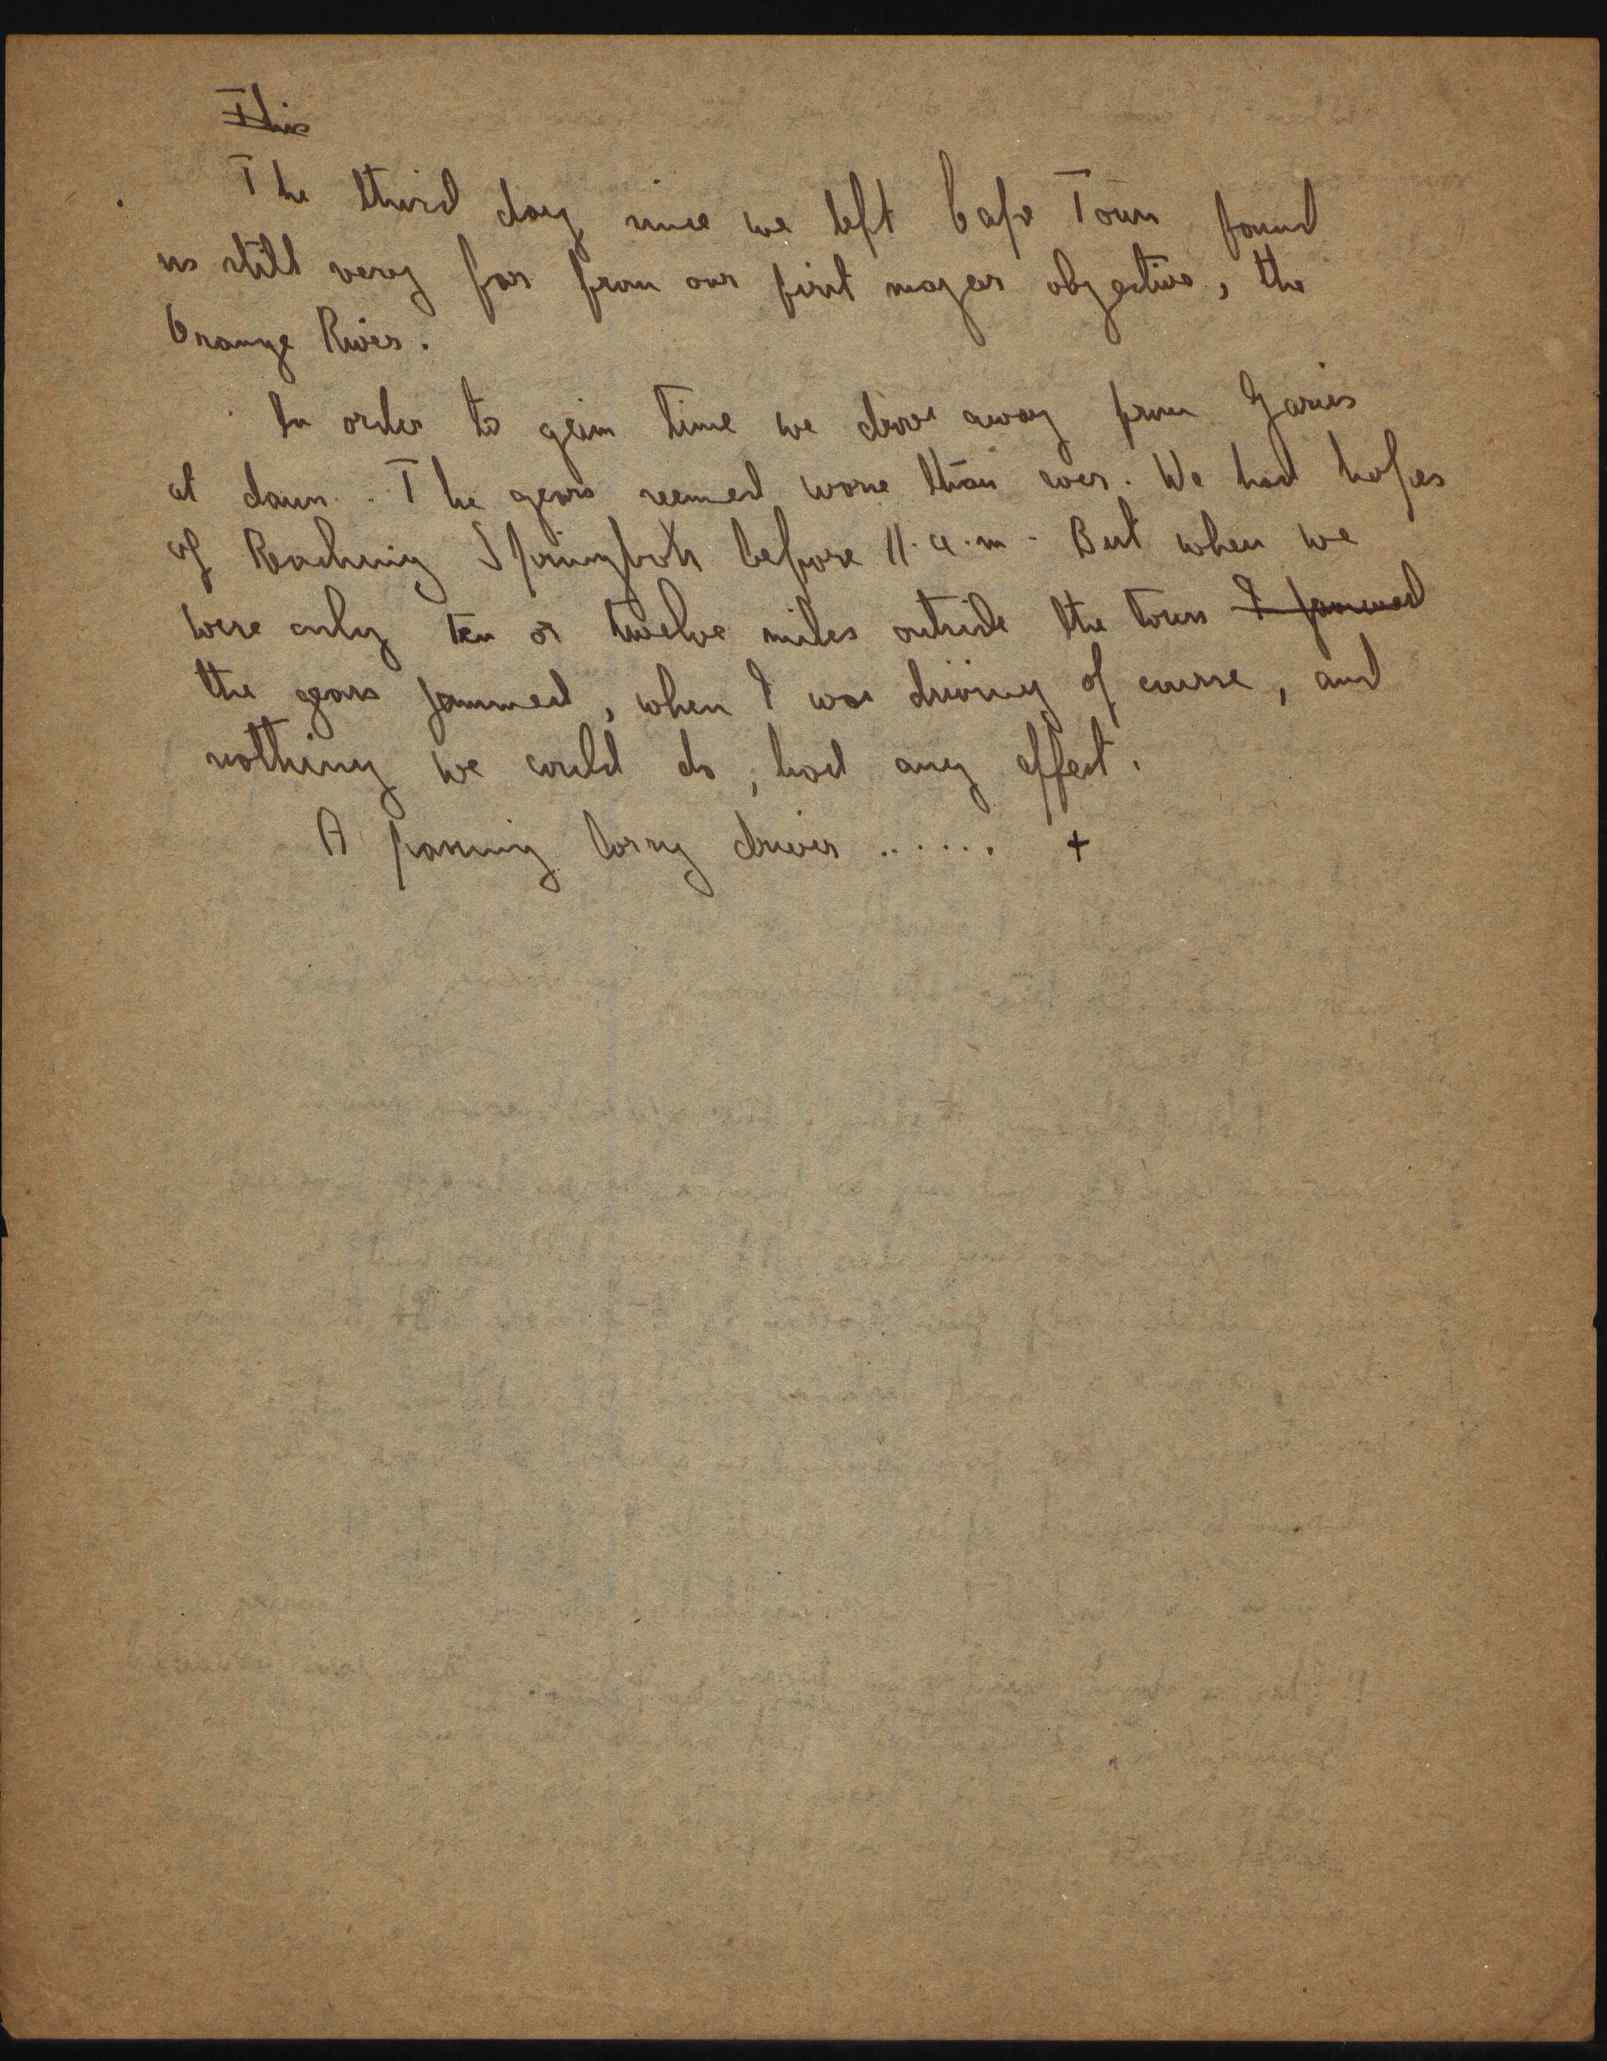 This
The third day since we left Cape Town found
us still very far from our first major objective, the
Orange River.
In order to gain time we drove away from Garies
at dawn. The gears seemed worse than ever. We had hopes
of Reaching Springbok before 11.a.m. But when we
were only ten or twelve miles outside the town I jammed
the gears jammed, when I was driving of course, and
nothing we could do, had any effect.
A passing lorry driver ...... +